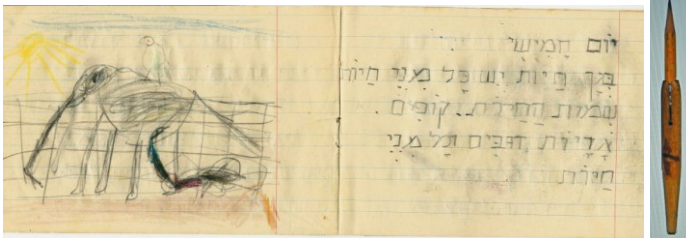 יום חמישי
בגן חיות יש כל מני חיות
שמות החיות. קופים
אריות, דובים וכל מני
חיות